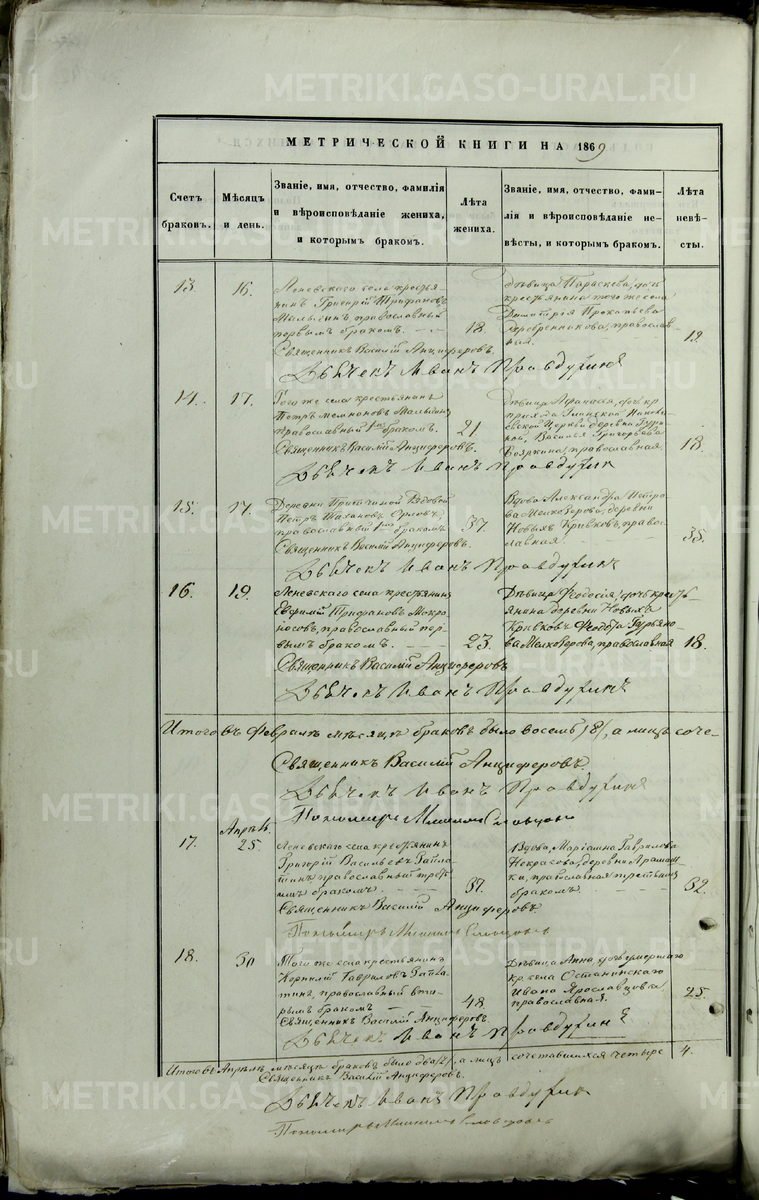 МЕТРИЧЕСКОЙ КНИГИ НА 1869
Счетъ браковъ.
Мѣсяцъ и день.
Званіе, имя, отчество, фамилія
и вѣроисповѣданіе жениха,
и которымъ бракомъ.
Лѣта жениха.
Званіе, имя, отчество, фами-
лія и вѣроисповѣданіе не-
вѣсты, и которымъ бракомъ.
Лѣта невѣ-
сты.
13.
16.
Леневскаго села крестья-
нинъ Григорій Трифановъ
православный
первымъ бракомъ.
18.
Дѣвица Параскева, дочь
крестьянина того же села
Димитрія Прокопьева
Серебренникова, православ-
ная.
19.
Священникъ Василій Анциферовъ.
Дьячекъ Иванъ Правдухинъ
14.
17.
Того же села крестьянинъ
Петръ
православный 1мъ бракомъ.
21
Дѣвица Афанасія, дочь кр.
прихода Глинской
церкви деревни
Василья Григорьева
Бояркина, православная.
18.
Священникъ Василій Анциферовъ.
Дьячекъ Иванъ Правдухинъ
15.
17.
Деревни
Петръ
православный бракомъ
37.
Вдова Александра Петро-
ва Мелкозерова, деревни
Новыхъ Кривковъ, право-
славная.
35.
Священникъ Василій Анциферовъ.
Дьячекъ Иванъ Правдухинъ
16.
19.
Леневскаго села крестьянинъ
Евфимій Трифановъ Мокро-
носовъ, православный пер-
вымъ бракомъ.
23.
Дѣвица Феодосія, дочь крес-
янина деревни Новыхъ
Кривковъ Феодора Гурьяно-
ва Мелкозерова, православная
18.
Священникъ Василій Анциферовъ
Дьячекъ Иванъ Правдухинъ
Итого въ Февралѣ мѣсяцѣ браковъ было восемь /8/, а лицъ соче-
Священникъ Василій Анциферовъ.
Дьячекъ Иванъ Правдухинъ
Пономарь Словцовъ
17.
Апрѣль
25
Леневскаго села крестьянинъ
Григорій Васильевъ
православный треть-
имъ бракомъ.
37.
Вдова, Маріамна Гаврилова
Некрасова, деревни Арамаш-
ки, православная третьимъ
бракомъ.
32.
Священникъ Василій Анциферовъ.
Пономарь Словцовъ
18.
30
Того же села крестьянинъ
Корнилій Гавриловъ
православный вто-
рымъ бракомъ
48.
Дѣвица Анна, дочь умершаго
кр. села Останинскаго
Ивана Ярославцова,
православная.
25.
Священникъ Василій Анциферовъ
Дьячекъ Иванъ Правдухинъ
Итого въ Апрѣлѣ мѣсяцѣ браковъ было два /2/, а лицъ сочетавшихся четыре 4.
Священникъ Василій Анциферовъ.
Дьячекъ Иванъ Правдухинъ
Пономарь Словцовъ
METRIKI.GASO-URAL.RU